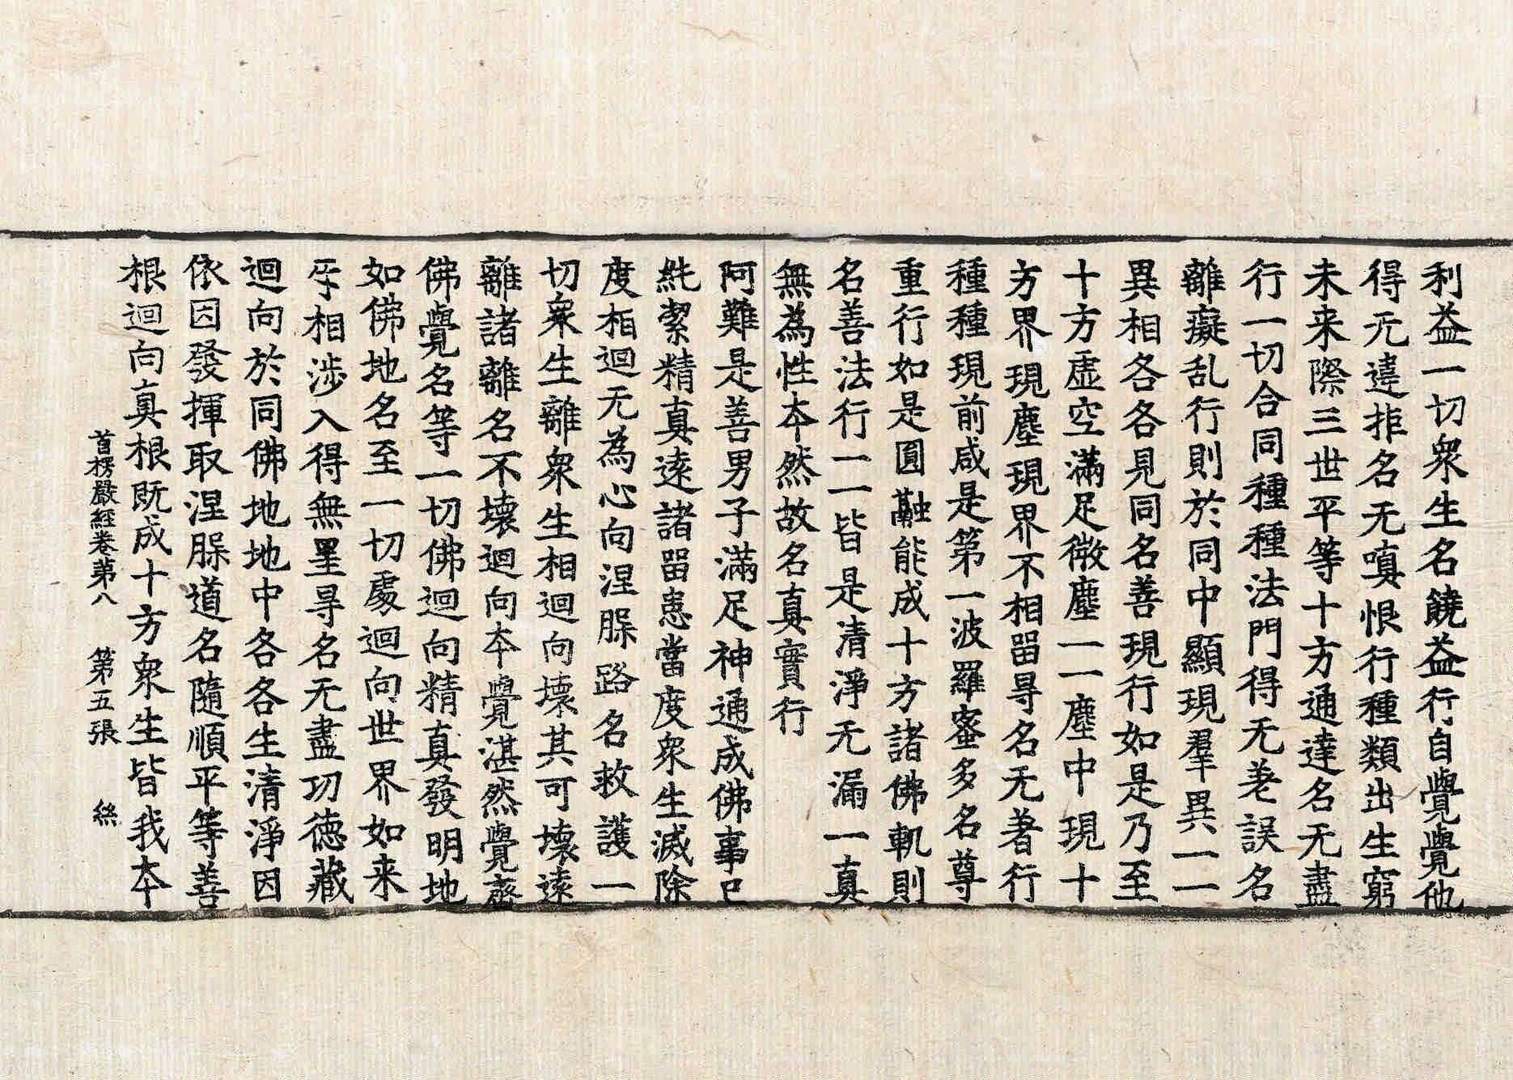 利益一切衆生名饒益行自覺覺他
得无違拒名无嗔恨行種類出生窮
未来際三世平等十方通達名无盡
行一切合同種種法門得无差誤名
離癡乱行則於同中顯現羣異一一
異相各各見同名善現行如是乃至
十方虛空滿足微塵一一塵中現十
方界現塵現界不相留㝵名无著行
種種現前咸是第一波羅蜜多名尊
重行如是圓融能成十方諸佛軌則
名善法行一一皆是清淨无漏一真
無為性夲然故名真實行
阿難是善男子滿足神通成佛事已
純潔精真遠諸留患當度衆生滅除
度相迴无為心向涅槃路名救護一
切衆生離衆生相迴向壞其可壞遠
離諸離名不壞迴向夲覺湛然覺齊
佛覺名等一切佛迴向精真發明地
如佛地名至一切處迴向世界如来
互相涉入得無罣㝵名无盡功德藏
迴向於同佛地地中各各生清淨因
依因發揮取涅槃道名隨順平等善
根迴向真根既成十方衆生皆我夲
首楞嚴經卷第八　第五張　絲